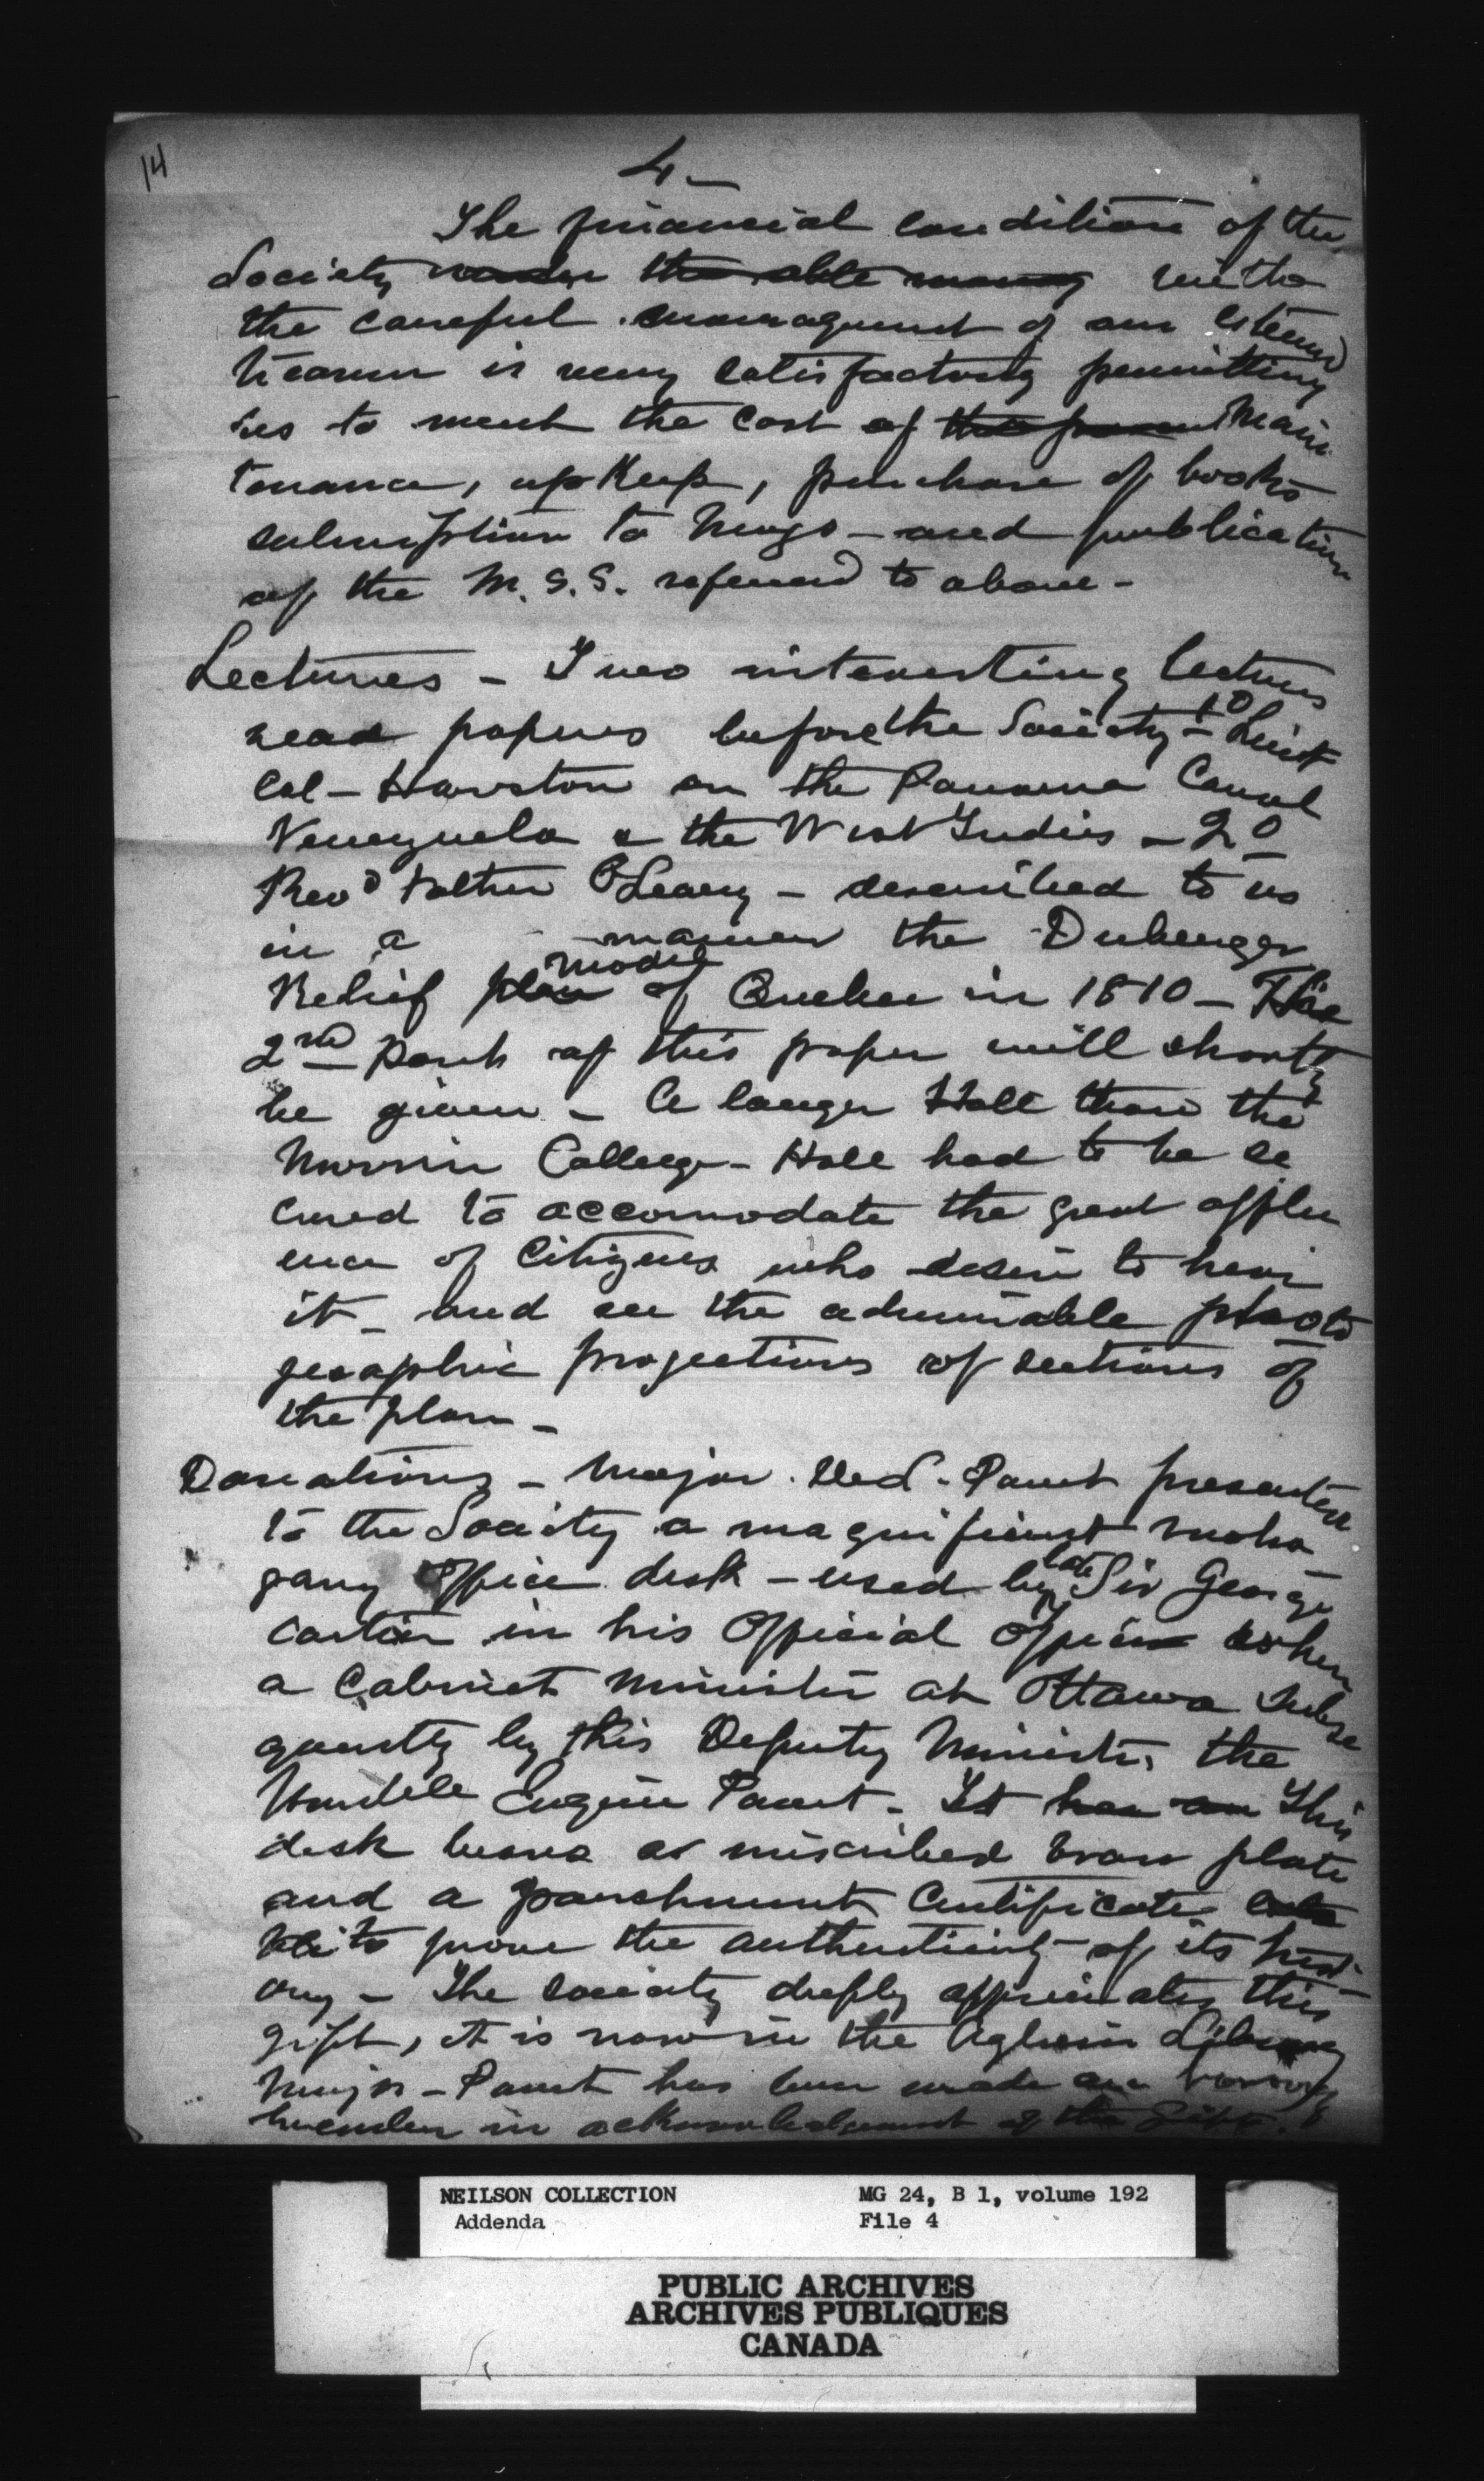 14
4 -
The financial condition of the
Society under the able manag with
the careful management of our esteemd
Treasurer is very satisfactory permitting
us to meet the cost of Main
tenance, upkeep, purchase of books
subscription to Mags - and publication
of the M.S.S. referred to above -
Lectures - Two interesting lectures
read papers before the Society - 1o Lieut
Col - on the Panama Canal
Venezuela & the West Indies - 2o
Revd Father O'Leary - described to us
in a manner the Duberger
Relief plan model of Quebec in 1810 - The
2nd Part of this paper will shortly
be given - A larger Hall than the
Morrin College - Hall had to be se
cured to accomodate the great afflu
ence of Citizens who desire to hear
it - and see the admirable photo
graphic projections of sections of
the plan -
Donations - Major Panet presented
to the Society a magnificent maho
gany office desk - used by late Sir George
Cartier in his Official Office when
a Cabinet Minister at Ottawa Subse
quently by his Deputy Minister the
Honble Eugène Panet - It has an This
desk bears an inscribed brass plate
and a parchment Certificate
to prove the authenticity of its hist-
ory - The Society deeply appreciates this
gift, it is now in the Aylwin Library
Major - Panet has been made an honorary
member in acknowledgement of the Gift.
NEILSON COLLECTION
Addenda
MG 24, B 1, volume 192
File 4
PUBLIC ARCHIVES
ARCHIVES PUBLIQUES
CANADA